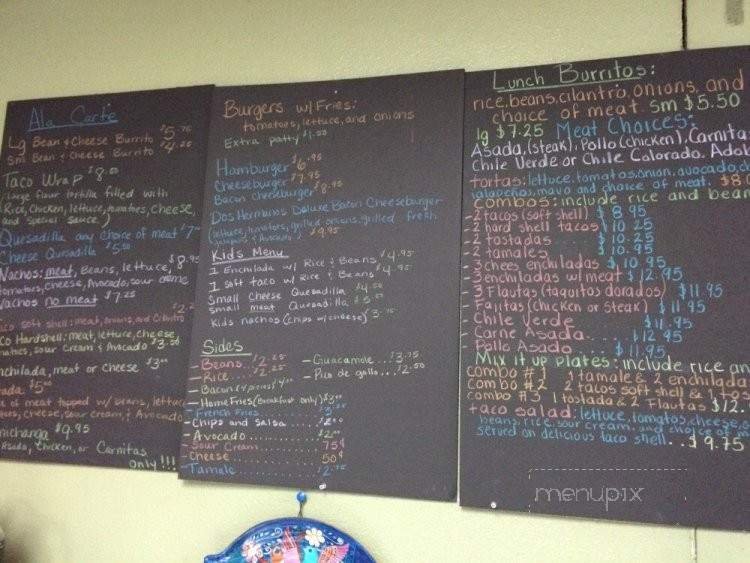 Ala Carte
Lg Bean & Cheese Burrito $5.75
Sm Bean & Cheese Burrito $4.25
Taco Wrap $8.00
Large flour tortilla filled with
Rice, Chicken, lettuce, tomatoes, cheese,
and special sauce
Quesadilla any choice of meat $7
Cheese Quesadilla $5.50
Nachos: meat, Beans, lettuce, $8.95
tomatoes, cheese, Avocado, sour creme
Nachos no meat $7.25
co soft shell: meat, onions, and cilantro
co Hardshell: meat, lettuce, cheese,
matoes, sour cream & Avocado $3.50
nchilada, meat or cheese $3
ada $5
e of meat topped w/ beans, lettuce
oes, cheese, sour cream, & Avocado
michanga $9.95
Asada, chicken, or Carnitas
only!!!
Burgers w/ Fries:
tomatoes, lettuce, and onions
Extra patty $1.00
Hamburger $6.95
Cheeseburger $7.95
Bacon cheeseburger $8.95
Dos Hermanos Deluxe Bacon Cheeseburger
(lettuce, tomatoes, grilled onions, grilled fresh
jalapenos & Avocado) $9.95
Kids Menu
1 Enchilada w/ Rice & Beans $4.95
1 soft taco w/ Rice & Beans $4.95
Small cheese Quesadilla $4.50
Small meat Quesadilla $5.50
Kids nachos (chips w/ cheese) $3.75
Sides
- Beans $2.25
- Rice $2.25
- Guacamole $3.75
- Pico de gallo $2.50
- Bacon
- Home Fries (Breakfast only) $3.00
- French Fries
- Chips and salsa
- Avocado
- Sour Cream 75¢
- Cheese 50¢
- Tamale
Lunch Burritos:
rice, beans, cilantro, onions, and
choice of meat sm $5.50
lg $7.25 Meat Choices:
Asada, (steak), Pollo (chicken), Carnita
Chile Verde or Chile Colorado, Adob
tortas: lettuce, tomatos, onion, avocado, c
jalapeños, mayo and choice of meat. $8.
combos: include rice and bean
- 2 tacos (soft shell) $8.95
- 2 hard shell tacos $10.25
- 2 tostadas $10.25
- 2 tamales $10.95
- 3 chees enchiladas $10.95
- 3 enchiladas w/ meat $12.95
- 3 Flautas (taquitos dorados) $11.95
- Fajitas (chicken or steak) $11.95
- Chile Verde $11.95
- Carne Asada $12.95
- Pollo Asado $11.95
Mix it up plates: include rice an
combo #1 1 tamale & 2 enchilada
combo #2 2 tacos soft shell & 1 tos
combo #3 1 tostada & 2 Flautas $12.
taco salad: lettuce, tomatos, cheese,
beans, rice, sour cream, and choice of
served on delicious taco shell... $9.75
menupix